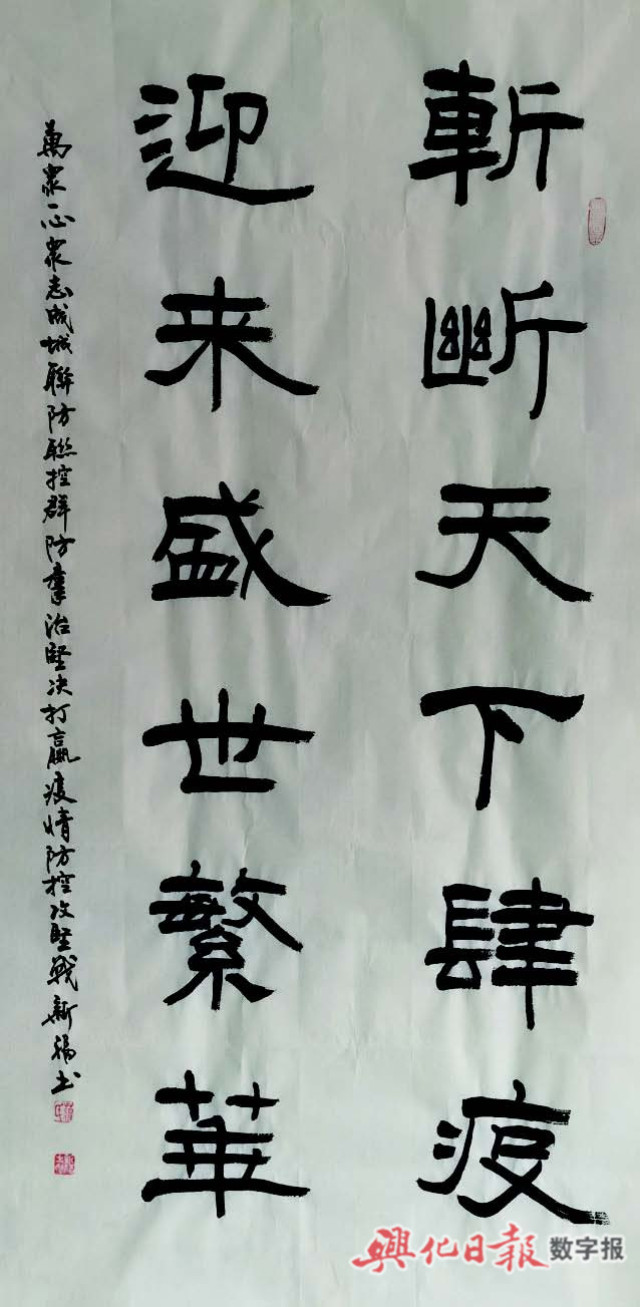 斬斷天下肆疫
迎来盛世繁華
萬衆一心衆志成城聯防聯控群防羣治堅决打贏疫情防控攻堅戰新福书
興化日報数字报